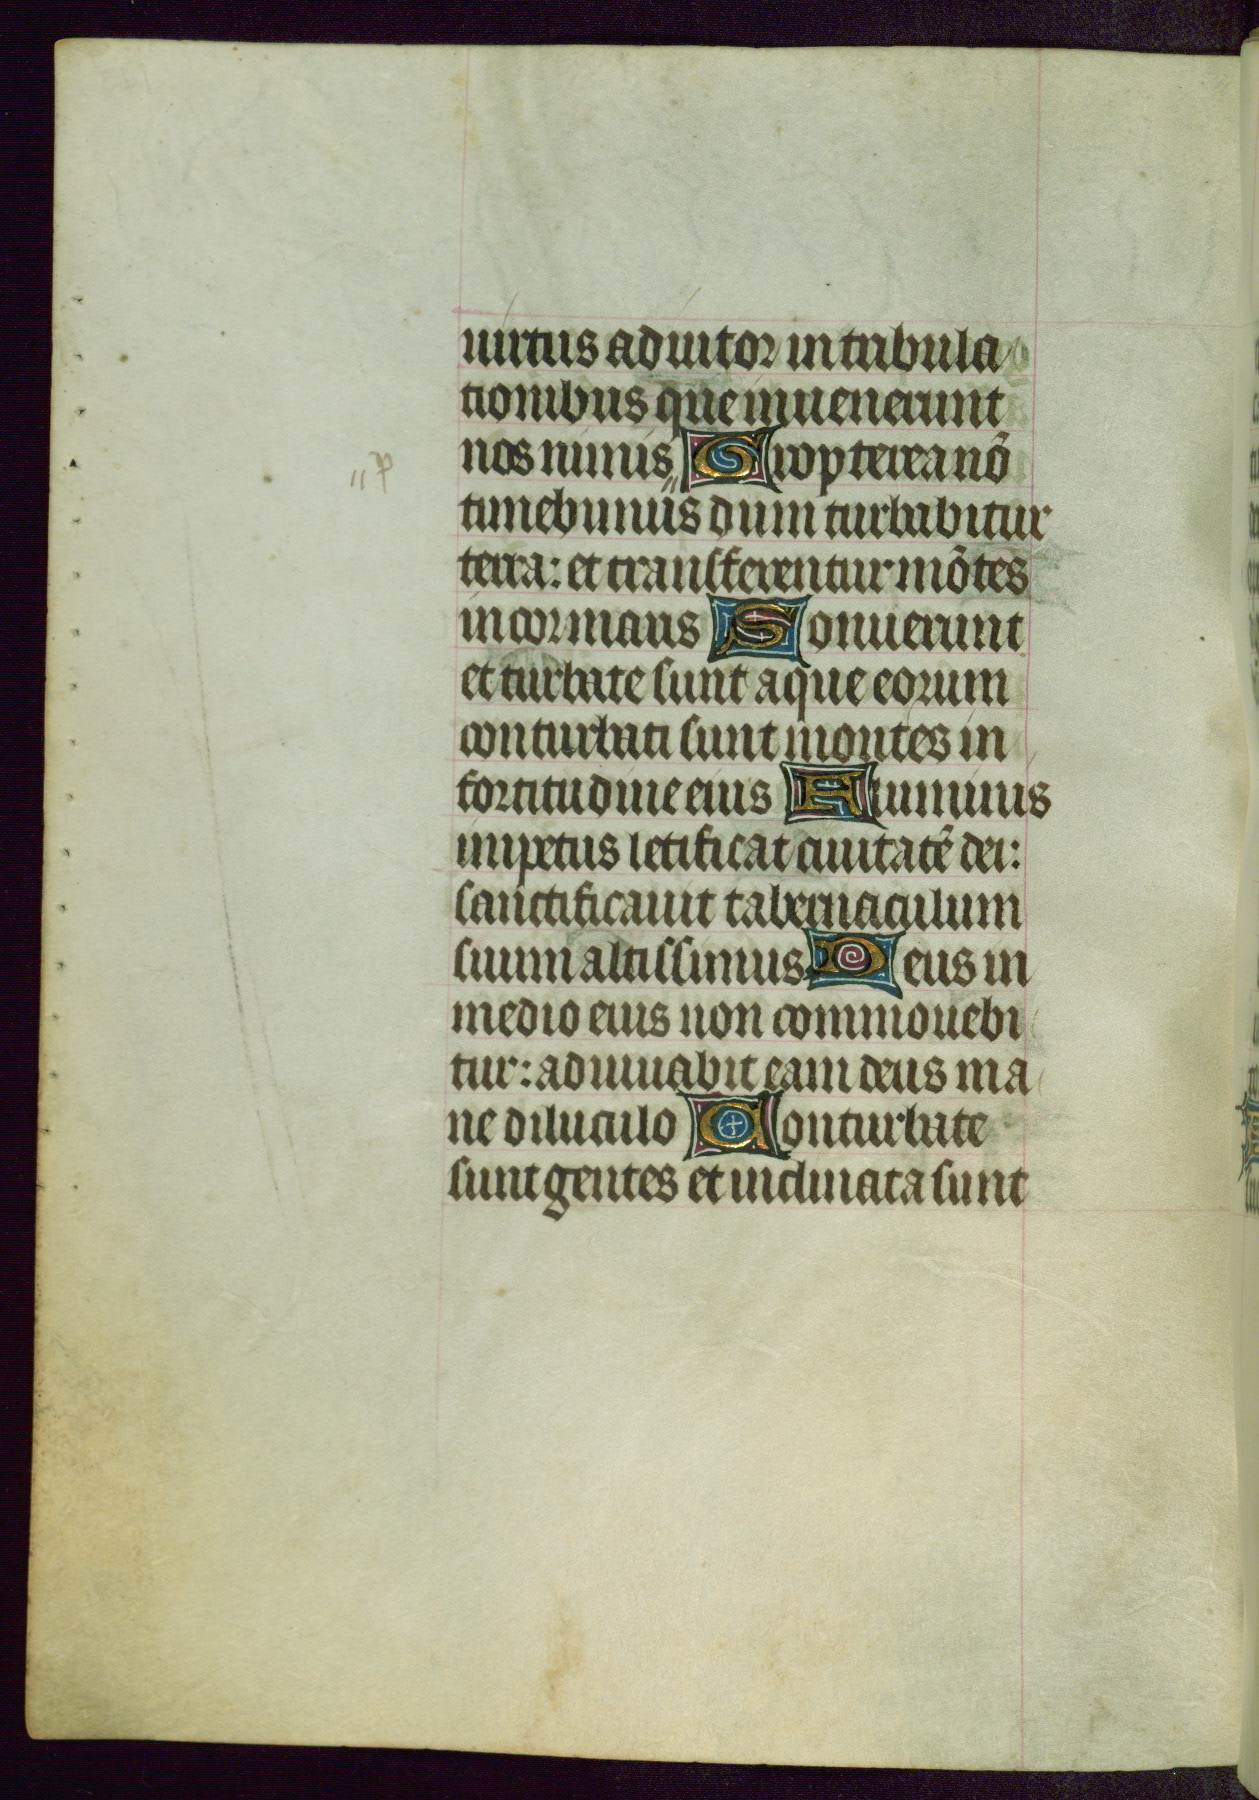 uirtus adiutor in tribula
tionibus que inuenerunt
nos nimis Gropterea nō
timebimus dum turbabitur
terra: et transferentur mōtes
in cor maris Sonuerunt
et turbate sunt aque eorum
conturbati sunt montes in
fortitudine eius Fluminis
impetus letificat ciuitatē dei:
sanctificauit tabernaculum
suum altissimus Deus in
medio eius non commouebi
tur: adiuuabit eam deus ma
ne diluculo Conturbate
sunt gentes et inclinata sunt